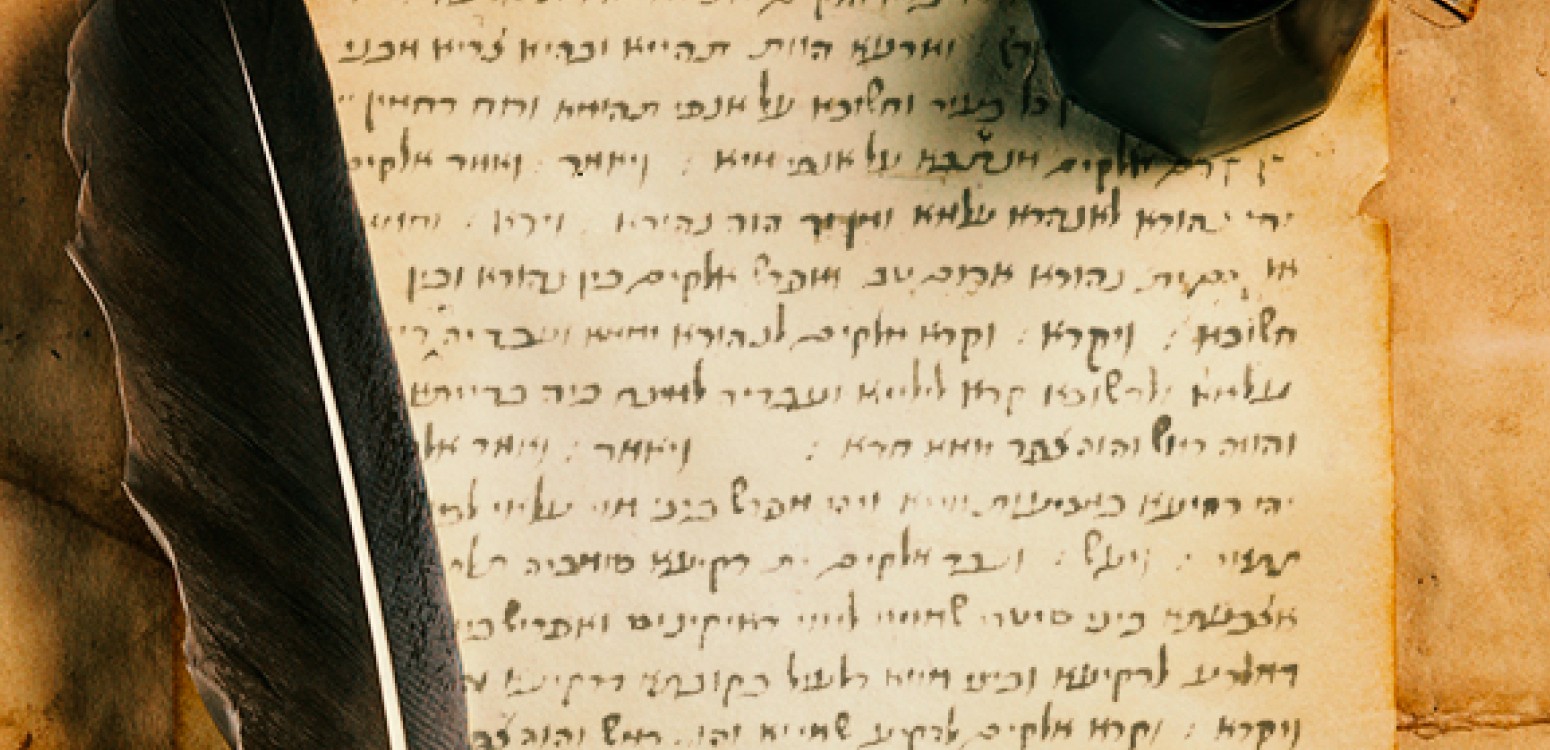 וארעא הוות תהייא ובהיא צדיא מבני
כל בעיר וחשוכא על אנפי תהומא ורוח רחמין
קדם אלקים מנתבא על אנפי מיא : ויאמר : ואמר אלקים
נהורא לאנהרא עלמא ומן יד הוה נהורא : וירא : וחמא
ית נהורא ארום טב ואפרש אלקים בין נהורא ובין
חשוכא : ויקרא : וקרא אלקים לנהורא יממא ועבדיה
עלמא ולחשוכא קרא לילייא ועבדיה למינח ביה ברייתא
והוה רמש והוה צפר יומא חדא : ויאמר : ואמר
יהי רקיעא במציעות מייא ויהי מפרש ביני מוי עילאי
תתאי : ויעש : ועבד אלקים ית רקיעא סומכיה תלת
אצבעתא ביני סיטרי שמייא למוי דאוקינוס ואפריש
דמלרע לרקיעא וביני מייא דלעיל בקובתא דרקיעא
ויקרא : וקרא אלקים לרקיע שמייא והוה רמש והוה